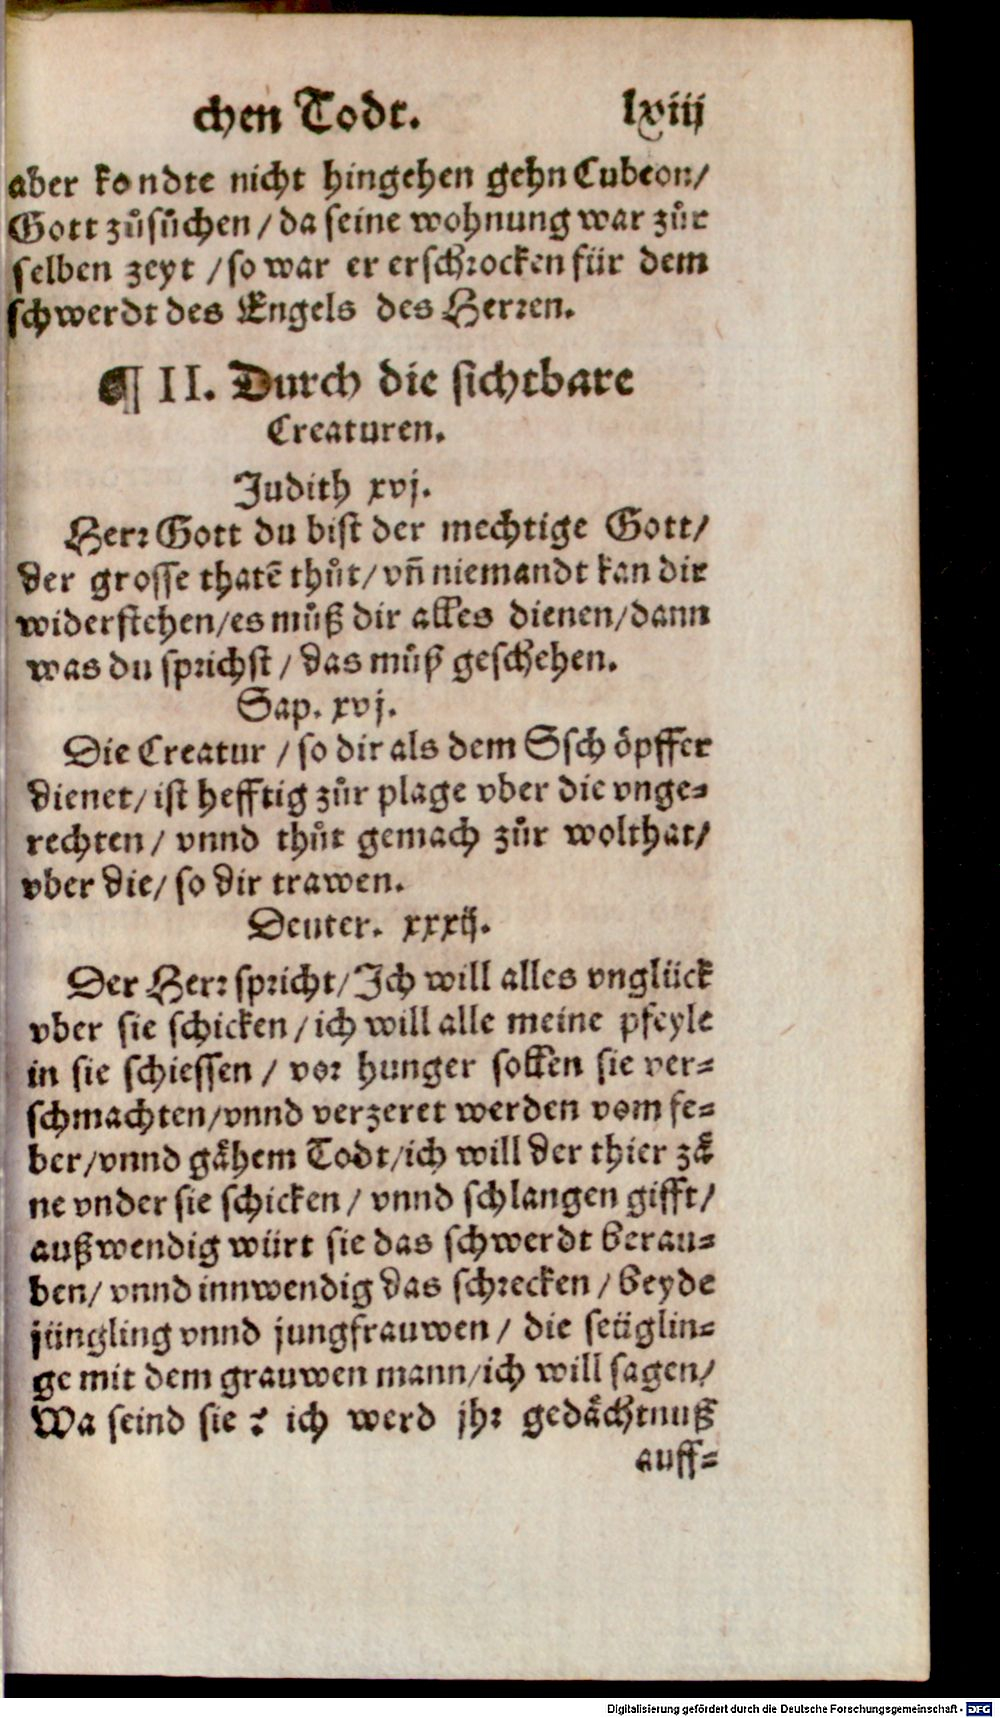 chen Todt. lxiij
aber kondte nicht hingehen gehn Cubeon/
Gott zůsůchen / da seine wohnung war zůr
selben zeyt / so war er erschrocken für dem
schwerdt des Engels des Herren.
¶ II. Durch die sichtbare
Creaturen.
Judith xvj.
Herr Gott du bist der mechtige Gott/
der grosse thatē thůt/ vñ niemandt kan dir
widerstehen/es můß dir alles dienen/dann
was du sprichst / das můß geschehen.
Sap. xvj.
Die Creatur / so dir als dem Sschöpffer
dienet/ ist hefftig zůr plage vber die vnge-
rechten / vnnd thůt gemach zůr wolthat/
vber die/ so dir trawen.
Deuter. xxxij.
Der Herr spricht/Ich will alles vnglück
vber sie schicken / ich will alle meine pfeyle
in sie schiessen / vor hunger sollen sie ver-
schmachten/vnnd verzeret werden vom fe-
ber/vnnd gåhem Todt/ich will der thier zå
ne vnder sie schicken / vnnd schlangen gifft/
außwendig würt sie das schwerdt berau-
ben/ vnnd innwendig das schrecken / beyde
jüngling vnnd jungfrauwen / die seüglin-
ge mit dem grauwen mann/ich will sagen/
Wa seind sie ? ich werd jhr gedåchtnuß
auff-
Digitalisierung gefördert durch die Deutsche Forschungsgemeinschaft - DFG